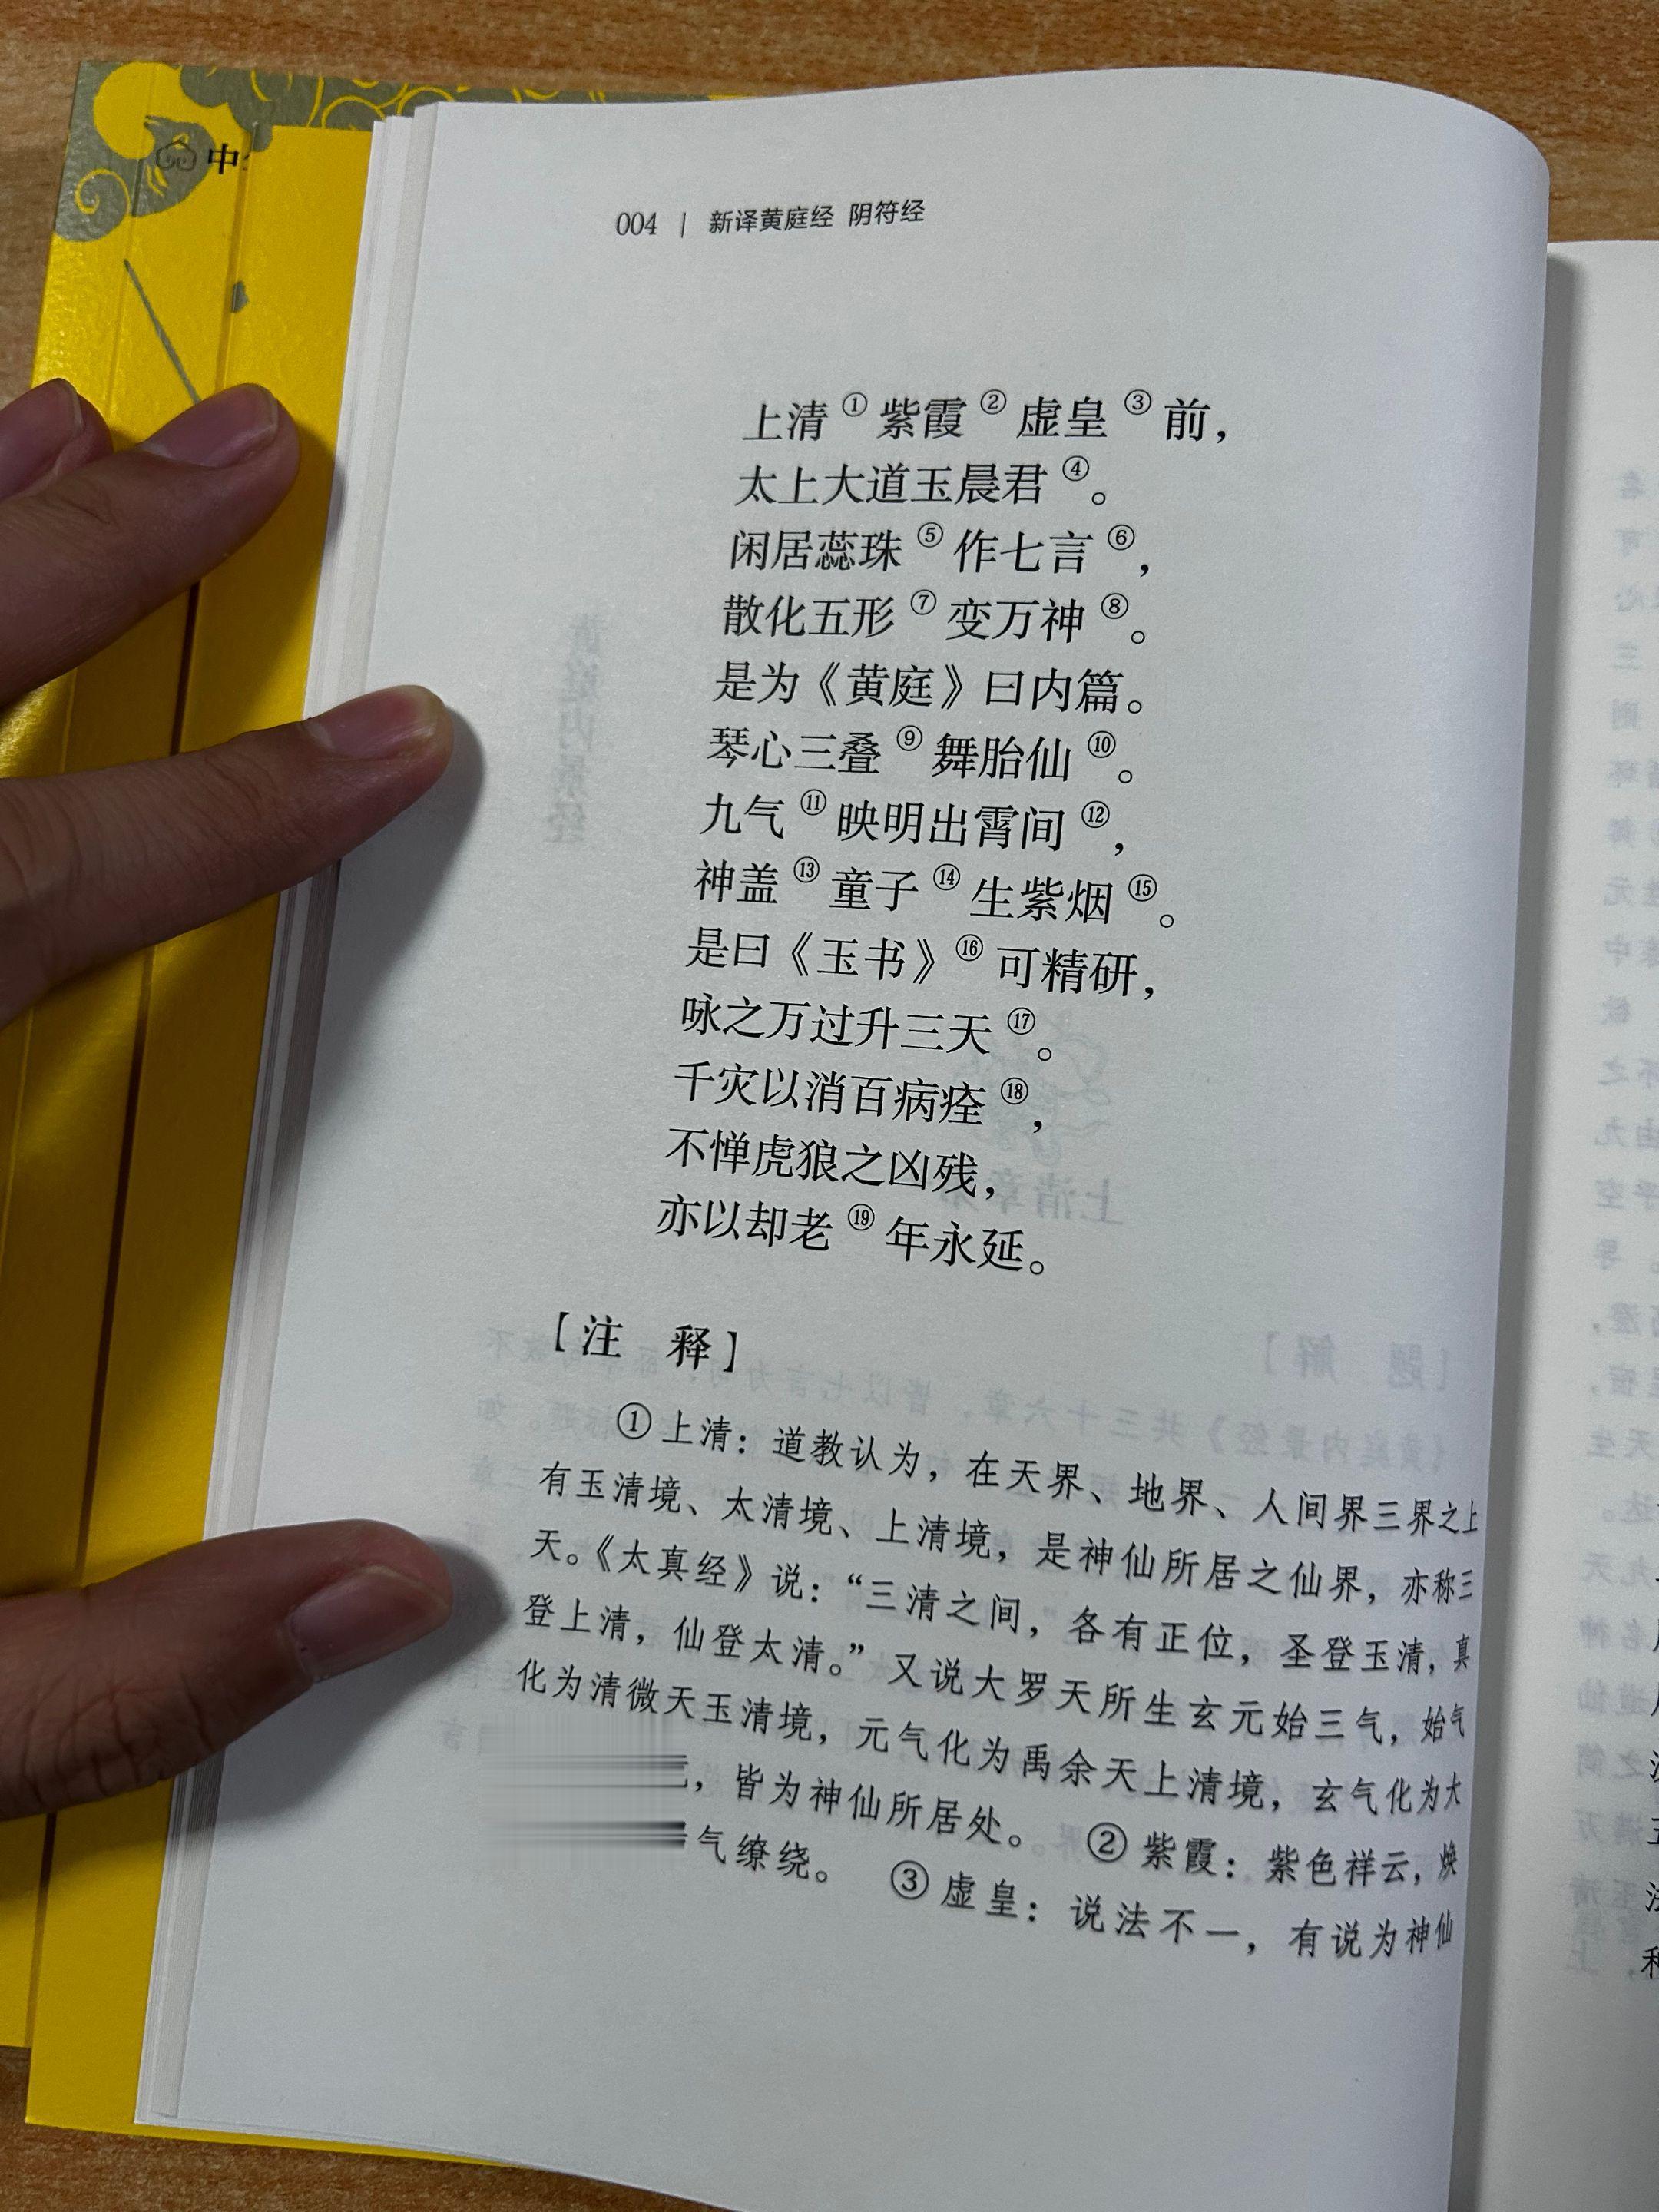 中
004 | 新译黄庭经 阴符经
上清①紫霞②虚皇③前，
太上大道玉晨君④。
闲居蕊珠⑤作七言⑥，
散化五形⑦变万神⑧。
是为《黄庭》曰内篇。
琴心三叠⑨舞胎仙⑩。
九气⑪映明出霄间⑫，
神盖⑬童子⑭生紫烟⑮。
是曰《玉书》⑯可精研，
咏之万过升三天⑰。
千灾以消百病痊⑱，
不惮虎狼之凶残，
亦以却老⑲年永延。
【注 释】
①上清：道教认为，在天界、地界、人间界三界之上
有玉清境、太清境、上清境，是神仙所居之仙界，亦称三
天。《太真经》说：“三清之间，各有正位，圣登玉清，真
登上清，仙登太清。”又说大罗天所生玄元始三气，始气
化为清微天玉清境，元气化为禹余天上清境，玄气化为大
，皆为神仙所居处。 ②紫霞：紫色祥云，焕
气缭绕。 ③虚皇：说法不一，有说为神仙